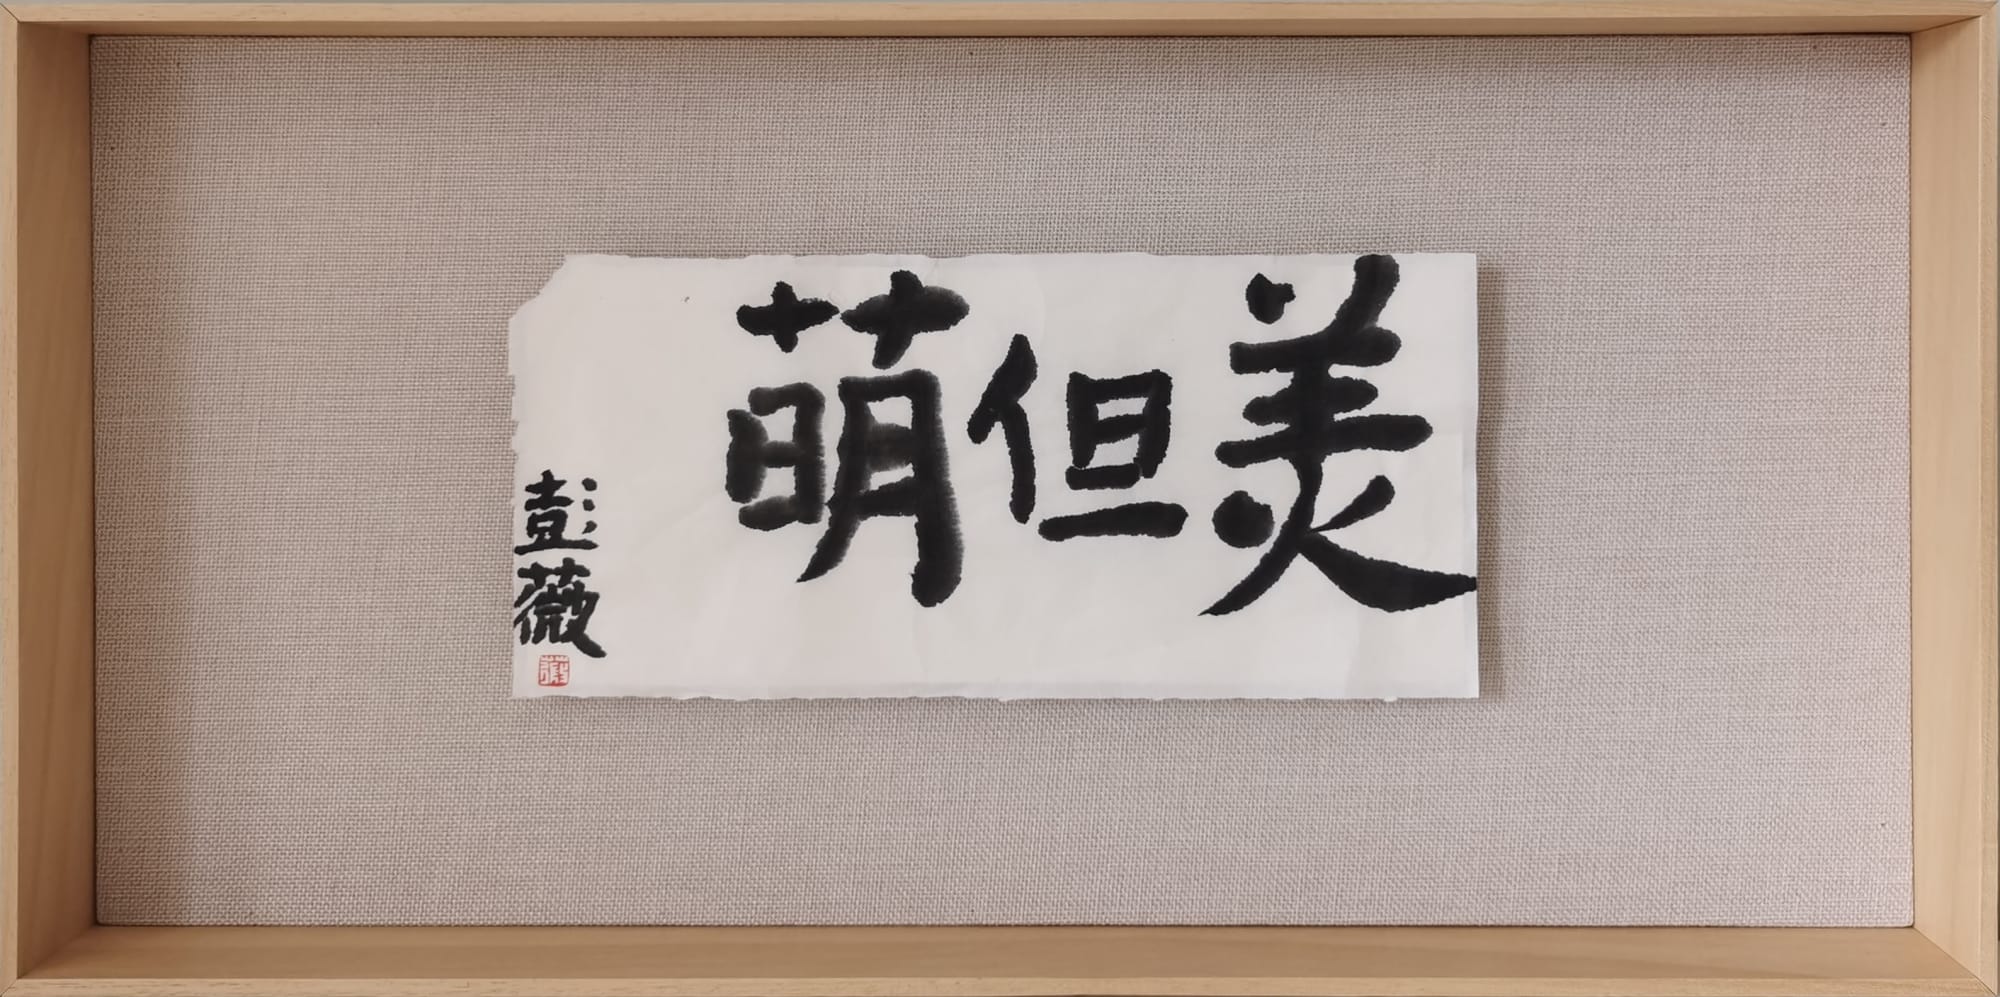 美但萌
彭薇